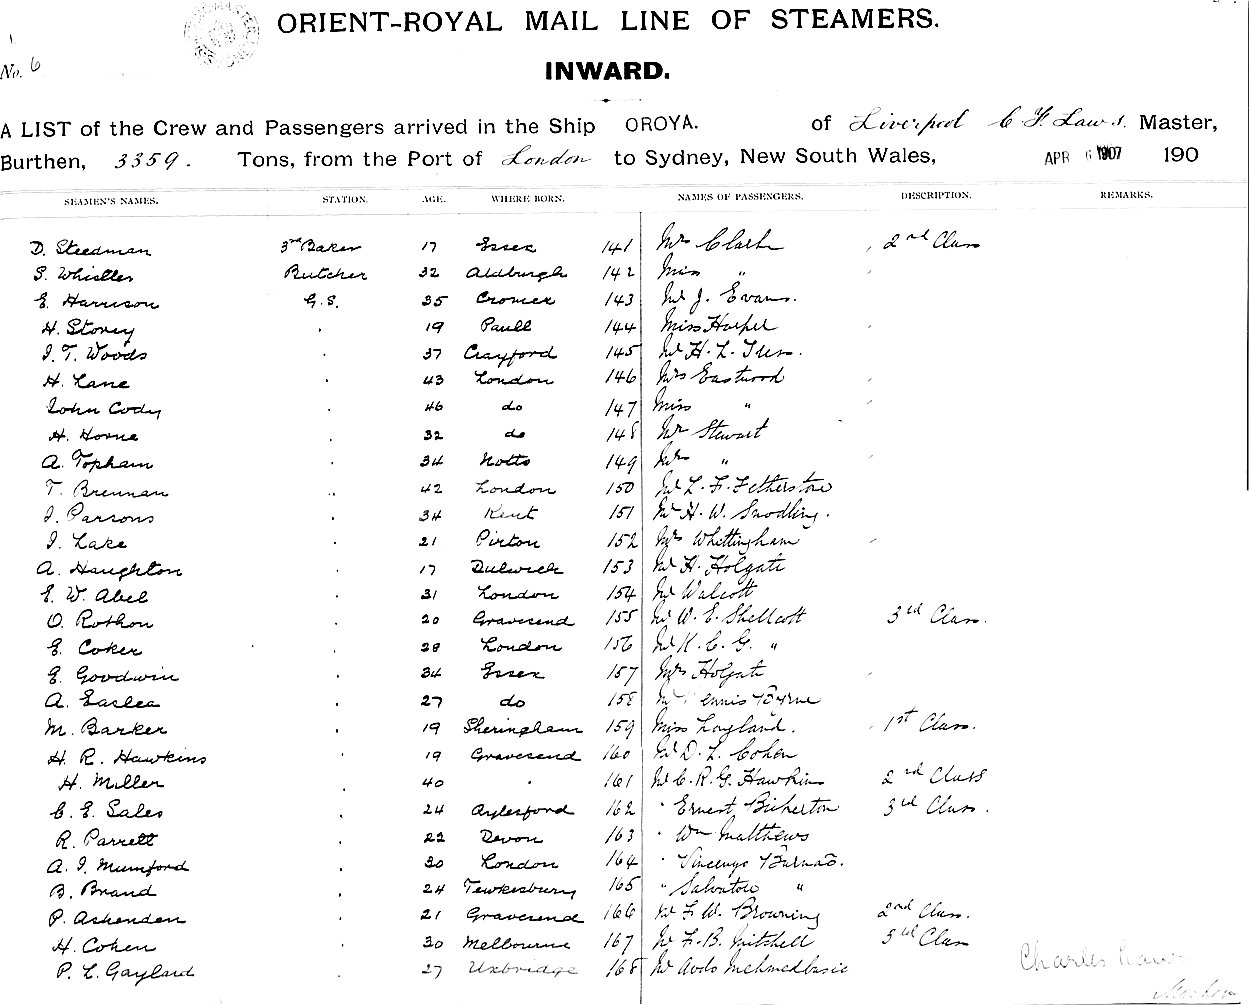 ORIENT-ROYAL MAIL LINE OF STEAMERS.
No. 6
INWARD.
A LIST of the Crew and Passengers arrived in the Ship OROYA. of Liverpool C F Laws. Master,
Burthen, 3359. Tons, from the Port of London to Sydney, New South Wales, APR 6 1907 190
SEAMEN'S NAMES. STATION. AGE. WHERE BORN. NAMES OF PASSENGERS. DESCRIPTION. REMARKS.
D. Steedman 3rd Baker 17 Essex 141 Mrs Clark 2nd Class
S. Whistler Butcher 32 Aldburgh 142 Miss "
E. Harrison G.S. 35 Cromer 143 Mr J. Evans.
H. Storey 19 Paull 144 Miss Harper
J. T. Woods 37 Crayford 145 Mr H. L. Iles.
H. Lane 43 London 146 Mrs Eastwood
John Cody 46 do 147 Miss "
H. Horne 32 do 148 Mr Stewart
A. Topham 34 Notts 149 Mrs "
T. Brennan 42 London 150 Mr L. F. Fetherston
J. Parsons 34 Kent 151 Mr H. W. Snodling.
J. Lake 21 Pirton 152 Mrs Whittingham
A. Haughton 17 Dulwich 153 Mr H. Holgate
E. W. Abel 31 London 154 Mr Walcott
O. Rothon 20 Gravesend 155 Mr W. E. Shellcott 3rd Class.
E. Coker 28 London 156 Mr K. C. G. "
E. Goodwin 34 Essex 157 Mrs Holgate
A. Earlea 27 do 158 Mr ennis Byrne
M. Barker 19 Sheringham 159 Miss Layland. 1st Class.
H. R. Hawkins 19 Gravesend 160 Mr D. L. Cohen
H. Miller 40 161 Mr C. R. G. Hawkins 2nd Class
C. E. Sales 24 Aylesford 162 " Ernest Bickerton 3rd Class.
R. Parrett 22 Devon 163 " Wm Matthews
A. J. Mumford 30 London 164 " Vincenzo
B. Brand 24 Tewkesbury 165 " Salvatore "
P. Ashenden 21 Gravesend 166 Mr F. W. Browning 2nd Class.
H. Cohen 30 Melbourne 167 Mr F. B. Mitchell 3rd Class
P. L. Gaylard 27 Uxbridge 168 Mr Avdo Mehmedbasic
Charles Laws